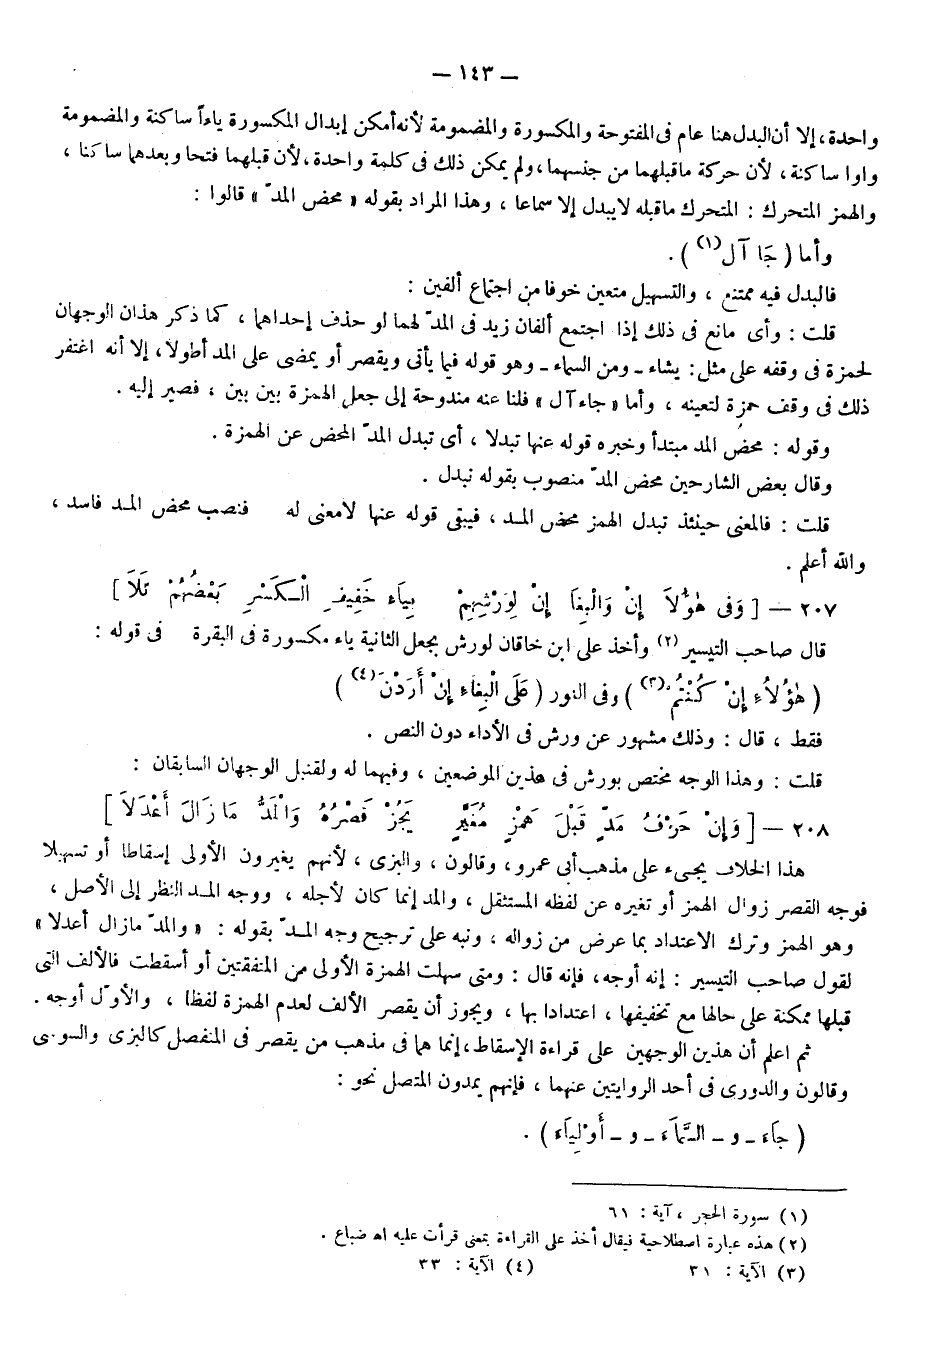 — ١٤٣ —
واحدة، إلا أن البدل هنا عام فى المفتوحة والمكسورة والمضمومة لأنه أمكن إبدال المكسورة ياءاً ساكنة والمضمومة
واوا ساكنة، لأن حركة ماقبلهما من جنسهما، ولم يمكن ذلك فى كلمة واحدة، لأن قبلهما فتحا وبعدهما ساكنا ،
والهمز المتحرك : المتحرك ماقبله لايبدل إلا سماعا ، وهذا المراد بقوله « محض المدّ » قالوا :
وأما ( جَا آل(١) ) .
فالبدل فيه ممتنع ، والتسهيل متعين خوفا من اجتماع ألفين :
قلت : وأى مانع فى ذلك إذا اجتمع ألفان زيد فى المدّ لهما لو حذف إحداهما ، كما ذكر هذان الوجهان
لحمزة فى وقفه على مثل: يشاء ـ ومن السماء ـ وهو قوله فيما يأتى ويقصر أو يمضى على المد أطولا، إلا أنه اغتفر
ذلك فى وقف حمزة لتعينه ، وأما « جاء آل » فلنا عنه مندوحة إلى جعل الهمزة بين بين ، فصير إليه .
وقوله : محض المد مبتدأ وخبره قوله عنها تبدلا ، أى تبدل المدّ المحض عن الهمزة .
وقال بعض الشارحين محض المدّ منصوب بقوله تبدل .
قلت : فالمعنى حينئذ تبدل الهمز محض المد ، فيبقى قوله عنها لامعنى له فنصب محض المد فاسد ،
والله أعلم .
٢٠٧ — [ وَفى هٰؤُلَا إِنْ وَالْبِغَا إِنْ لِوَرْشِهِمْ بِيَاءِ خَفِيفِ الْكَسْرِ بَعْضُهُمْ تَلَا ]
قال صاحب التيسير (٢) وأخذ على ابن خاقان لورش بجعل الثانية ياء مكسورة فى البقرة فى قوله :
( هٰؤُلَاءِ إِنْ كُنْتُمْ (٣) ) وفى النور ( عَلَى الْبِغَاءِ إِنْ أَرَدْنَ (٤) )
فقط ، قال : وذلك مشهور عن ورش فى الأداء دون النص .
قلت : وهذا الوجه مختص بورش فى هذين الموضعين ، وفيهما له ولقنبل الوجهان السابقان :
٢٠٨ — [ وَإِنْ حَرْفُ مَدٍّ قَبْلَ هَمْزٍ مُغَيَّرٍ يَجُزْ قَصْرُهُ وَالْمَدُّ مَا زَالَ أَعْدَلَا ]
هذا الخلاف يجىء على مذهب أبى عمرو، وقالون ، والبزى ، لأنهم يغيرون الأولى إسقاطا أو تسهيلا
فوجه القصر زوال الهمز أو تغيره عن لفظه المستثقل ، والمد إنما كان لأجله ، ووجه المد النظر إلى الأصل ،
وهو الهمز وترك الاعتداد بما عرض من زواله ، ونبه على ترجيح وجه المدّ بقوله : « والمدّ مازال أعدلا »
لقول صاحب التيسير : إنه أوجه، فإنه قال : ومتى سهلت الهمزة الأولى من المتفقتين أو أسقطت فالألف التى
قبلها ممكنة على حالها مع تخفيفها ، اعتدادا بها ، ويجوز أن يقصر الألف لعدم الهمزة لفظا ، والأوّل أوجه .
ثم اعلم أن هذين الوجهين على قراءة الإسقاط، إنما هما فى مذهب من يقصر فى المنفصل كالبزى والسوسى
وقالون والدورى فى أحد الروايتين عنهما ، فإنهم يمدون المتصل نحو :
( جَآءَ ـ و ـ السَّمَآءَ ـ و ـ أَوْلِيَآءَ ) .
(١) سورة الحجر ، آية : ٦١
(٢) هذه عبارة اصطلاحية فيقال أخذ على القراءة بمعنى قرأت عليه اه ضباع .
(٣) الآية : ٣١ (٤) الآية : ٣٣